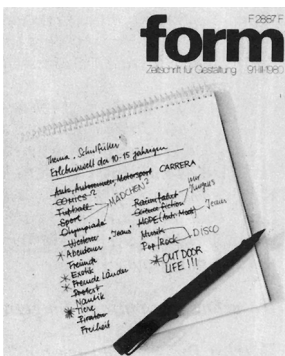 F 2887 F
form
Zeitschrift für Gestaltung 91-III-1980
Thema: Schulfüller
Erlebniswelt der 10-15 jährigen
Auto, Autorennen, Motorsport CARRERA
COMICS?
Fußball MÄDCHEN?
Sport
Olympiade
Western
* Abenteuer "Jeans"
Freunde
* Exotik
* Fremde Länder
Protest
Nautik
* Tiere
Piraten
Freiheit
nur Jungens
Raumfahrt
Science fiction
MODE (Anti-Mode) - Jeans
Musik
Pop/Rock DISCO
* OUT DOOR
LIFE!!!